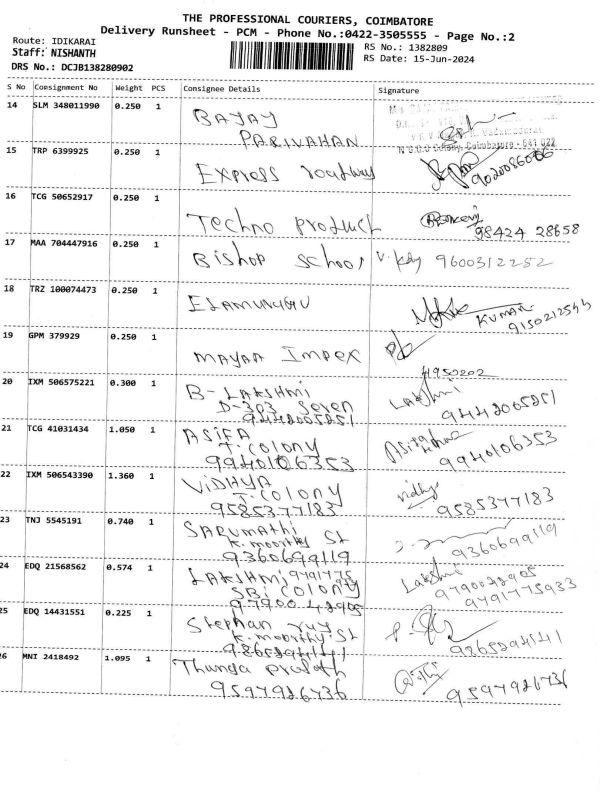 THE PROFESSIONAL COURIERS, COIMBATORE
Delivery Runsheet - PCM - Phone No.:0422-3505555 - Page No.:2
Route: IDIKARAI
Staff: NISHANTH
DRS No.: DCJB138280902
RS No.: 1382809
RS Date: 15-Jun-2024
S No Consignment No Weight PCS Consignee Details Signature
14 SLM 348011990 0.250 1 BAJAJ
PARIVAHAN
Coimbatore - 641 022
15 TRP 6399925 0.250 1 Express roadway
16 TCG 50652917 0.250 1 Techno product 98424 28658
17 MAA 704447916 0.250 1 Bishop School 9600312252
18 TRZ 100074473 0.250 1 KUMAR
19 GPM 379929 0.250 1 MAYAA Impex
41950202
20 IXM 506575221 0.300 1 B-LAKSHMI Lakshmi
D-303 Seven
9442005251 9442005251
21 TCG 41031434 1.050 1 ASIFA
T.COLONY
9940106353 9940106353
22 IXM 506543390 1.360 1 VIDHYA vidhya
T.COLONY
9585377183 9585377183
23 TNJ 5545191 0.740 1 SARUMATHI
K.moorthy St
9360699119 9360699119
24 EDQ 21568562 0.574 1 LAKSHMI 9791775 Lakshmi
933
SBI COLONY
9790042905 9791775933
25 EDQ 14431551 0.225 1 Stephan
K.moorthy St
9865294141 9865294141
26 MNI 2418492 1.095 1 Thunga
9597926736 9597926736